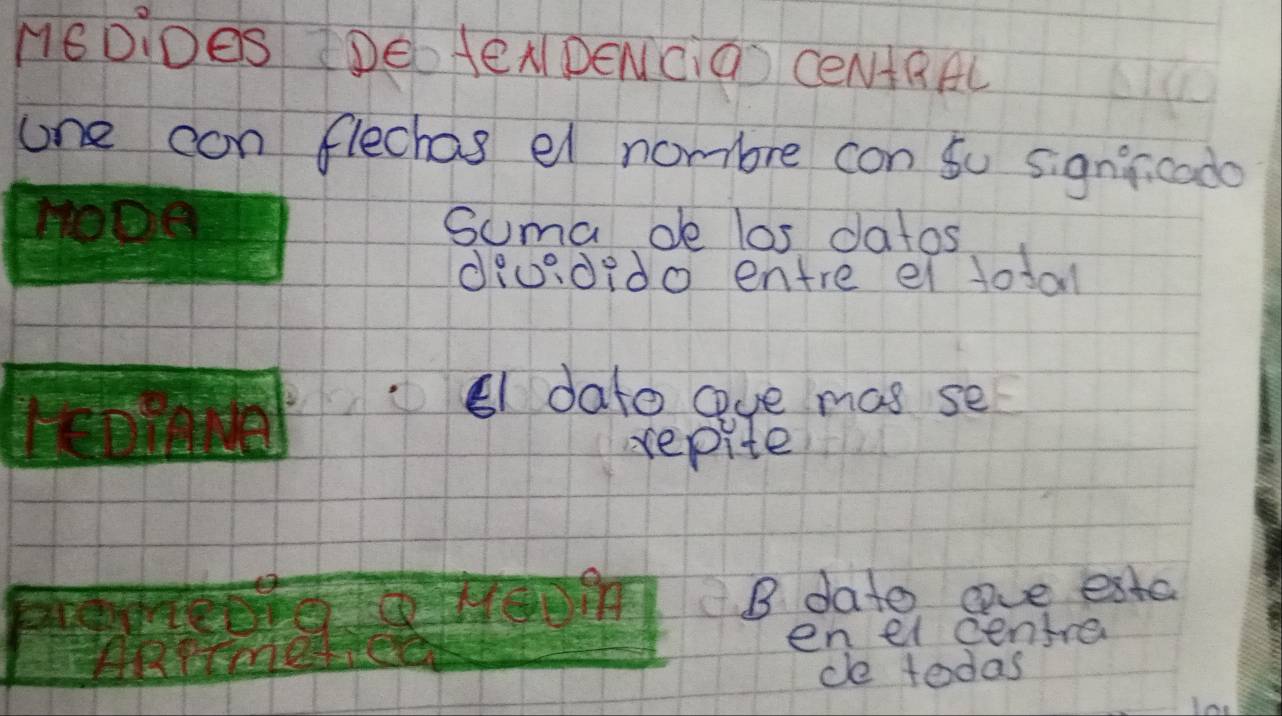 MEDiDES DE tENDENCia CeNtRAL
une con flechas el nombre con su significado
MODA
Suma de los datos
dividido entre el total
MEDiANA
El dato que mas se
repite
promedio o MEDiA
ARitmetica
B dato que esta
en el centro
de todas